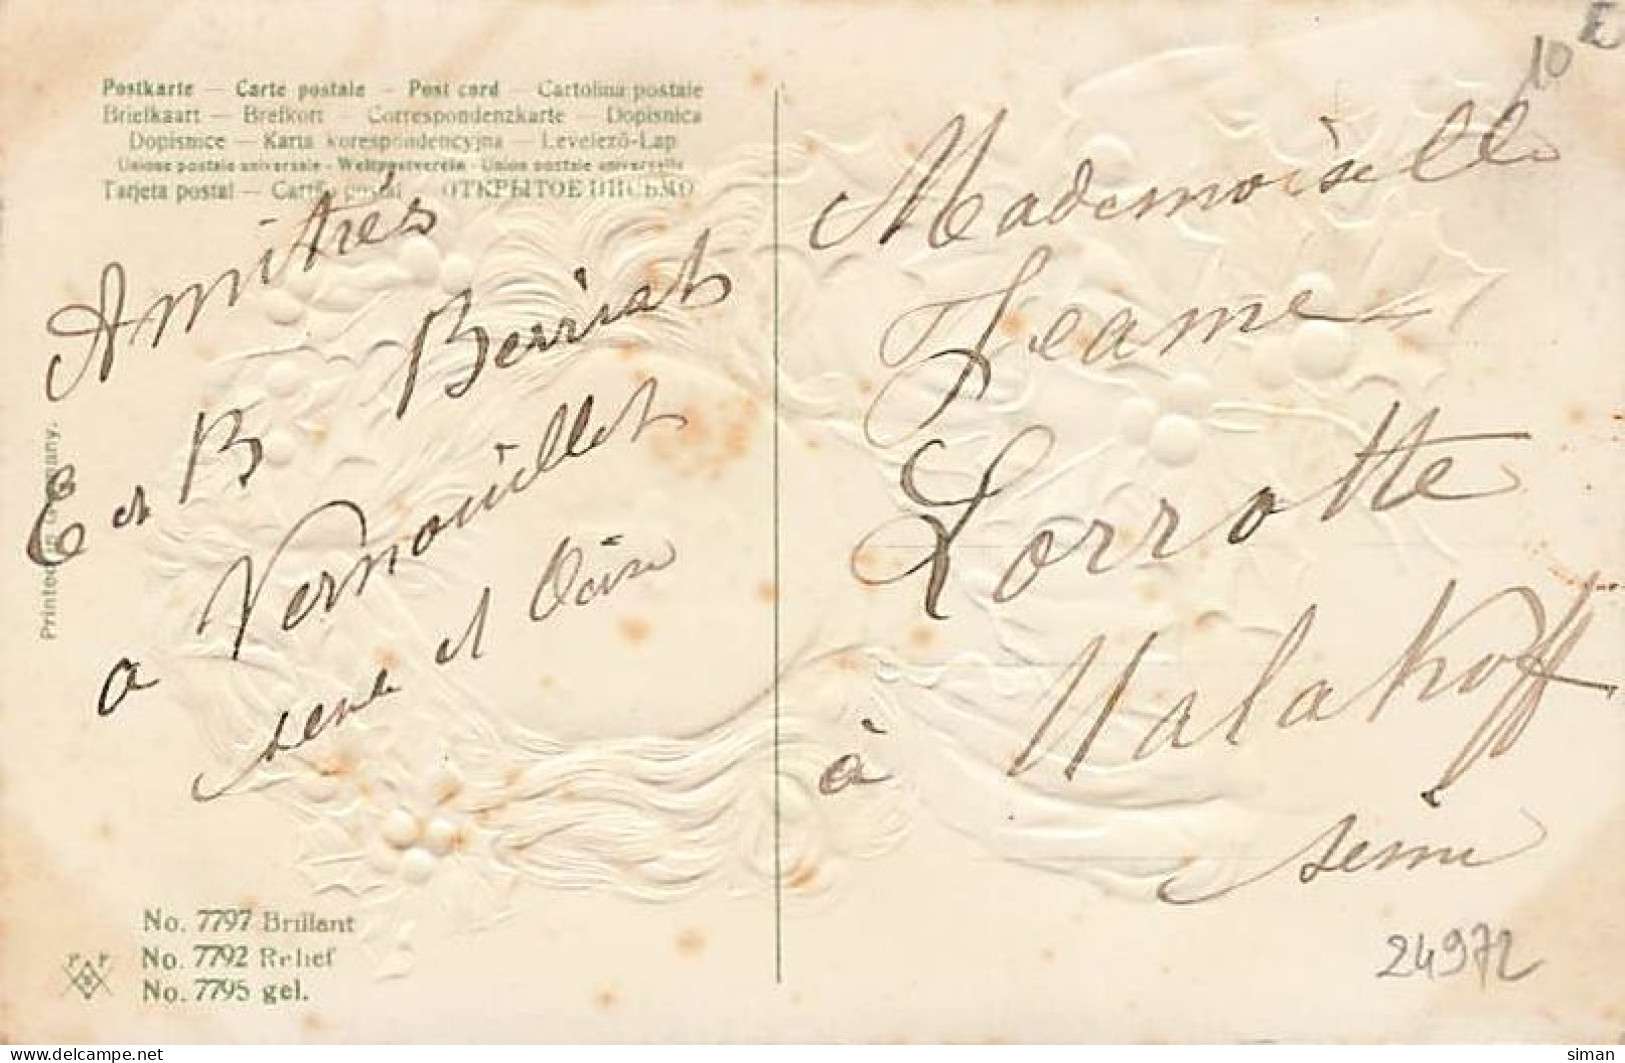 Postkarte — Carte postale — Post card — Cartolina postale
Briefkaart — Brefkort — Correspondenzkarte — Dopisnica
Dopisnice — Karta korespondencyjna — Levelezö-Lap
Unione postale universale - Weltpostverein - Union postale universelle
Tarjeta postal — Cartão postal — ОТКРЫТОЕ ПИСЬМО
Amitiés
E et B Berriat
a Vernouillet
seine et Oise
Printed in Germany.
No. 7797 Brillant
No. 7792 Relief
No. 7795 gel.
10 E
Mademoiselle
Jeanne
Lorrotte
à Malakoff
seine
24972
delcampe.net
siman